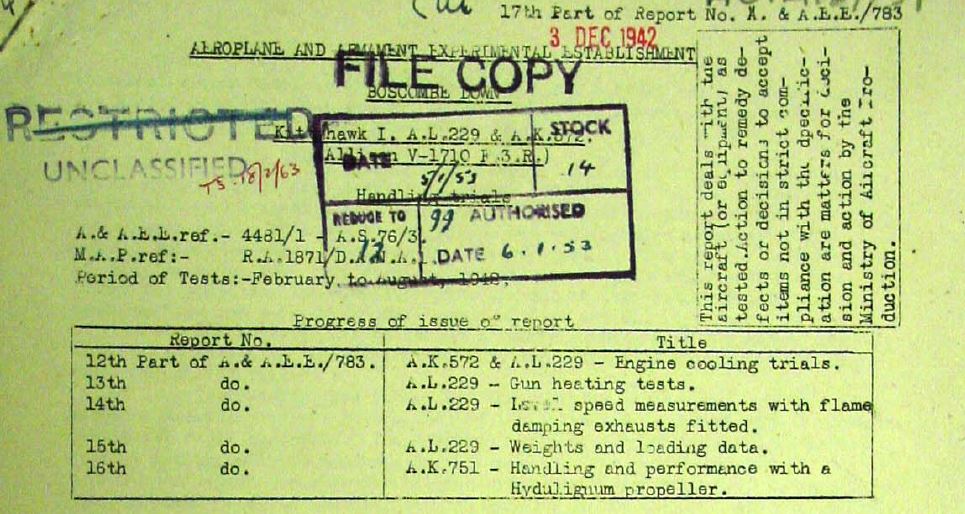 17th Part of Report No. A. & A.E.E./783
3 DEC 1942
AEROPLANE AND ARMAMENT EXPERIMENTAL ESTABLISHMENT
FILE COPY
BOSCOMBE DOWN
RESTRICTED
UNCLASSIFIED
TS 18/2/63
Kittyhawk I. A.L.229 & A.K.572.
(Allison V-1710 F.3.R.)
Handling trials
DATE
5/1/53
STOCK
14
REDUCE TO
99
AUTHORISED
12
DATE 6.1.53
A.& A.E.E.ref.- 4481/1 - A.S.76/3
M.A.P.ref:- R.A.1871/D.A.N.A.1.
Period of Tests:-February, to August, 1942.
This report deals with the
aircraft (or equipment) as
tested.Action to remedy de-
fects or decisions to accept
items not in strict com-
pliance with the specific-
ation are matters for deci-
sion and action by the
Ministry of Aircraft Pro-
duction.
Progress of issue of report
Report No. Title
12th Part of A.& A.E.E./783. A.K.572 & A.L.229 - Engine cooling trials.
13th do. A.L.229 - Gun heating tests.
14th do. A.L.229 - Level speed measurements with flame
damping exhausts fitted.
15th do. A.L.229 - Weights and loading data.
16th do. A.K.751 - Handling and performance with a
Hydulignum propeller.